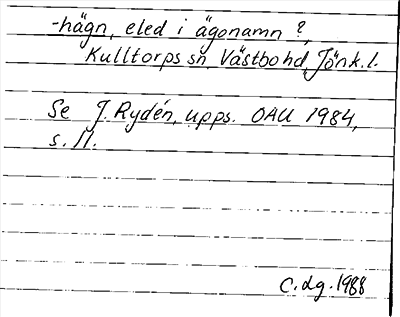 -hägn, eled i ägonamn?,
Kulltorps sn, Västbo hd, Jönk.l.
Se J. Rydén, upps. OAU 1984,
s. 11.
C.dg. 1988